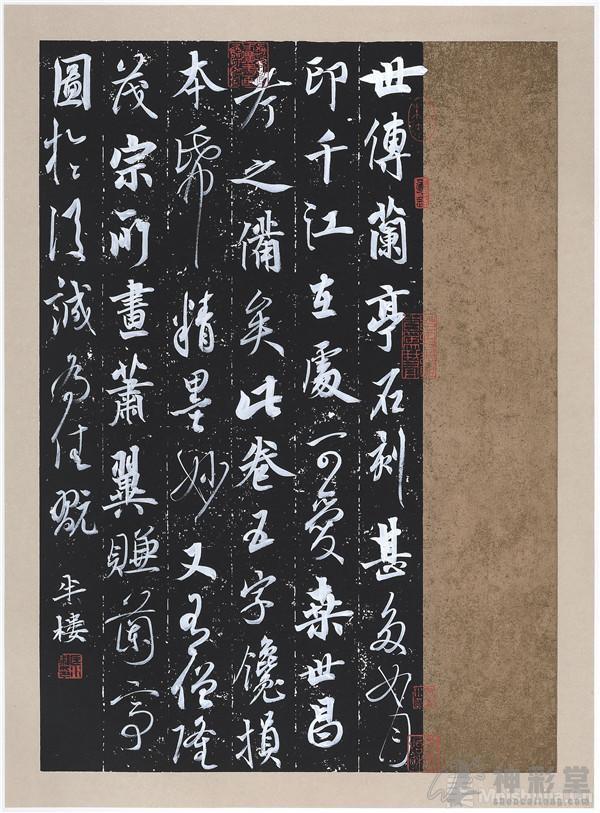 世傳蘭亭石刻甚多如月
印千江在處可愛桑世昌
考之備矣此卷五字鑱損
本帋精墨妙又有僧隆
茂宗所畫蕭翼賺蘭亭
圖扵後誠為佳翫
半樓
神彩堂